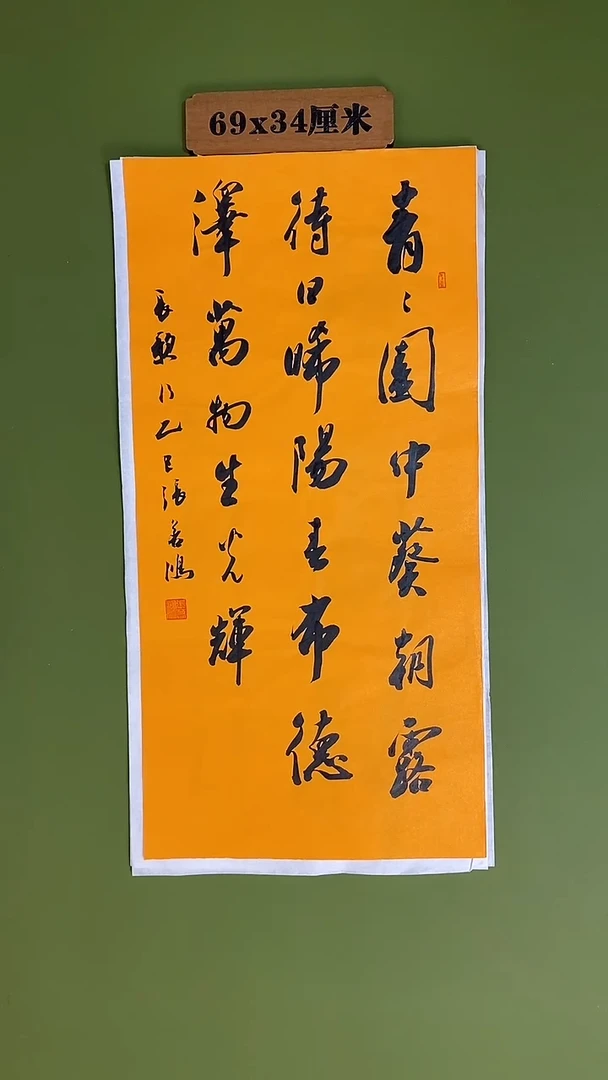 69x34厘米
青々園中葵朝露
待日晞陽春布德
澤萬物生光輝
長歌行乙巳張善鴻